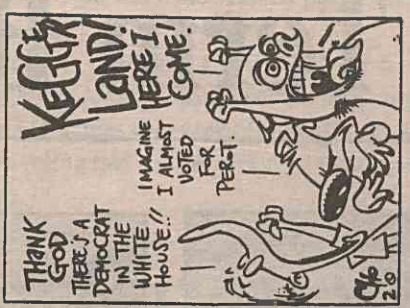 THANK
GOD
THERE'S A
DEMOCRAT
IN THE
WHITE
HOUSE!!
IMAGINE
I ALMOST
VOTED
FOR
PEROT.
KEGGER
LAND!
HERE I
COME!
CHO
2.0